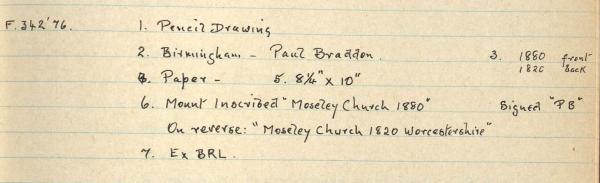 F.342'76. 1. Pencil Drawing
2. Birmingham - Paul Braddon. 3. 1880 front
1820 back
4. Paper - 5. 8¼" x 10"
6. Mount Inscribed "Moseley Church 1880" Signed "PB"
On reverse: "Moseley Church 1820 Worcestershire"
7. Ex BRL.